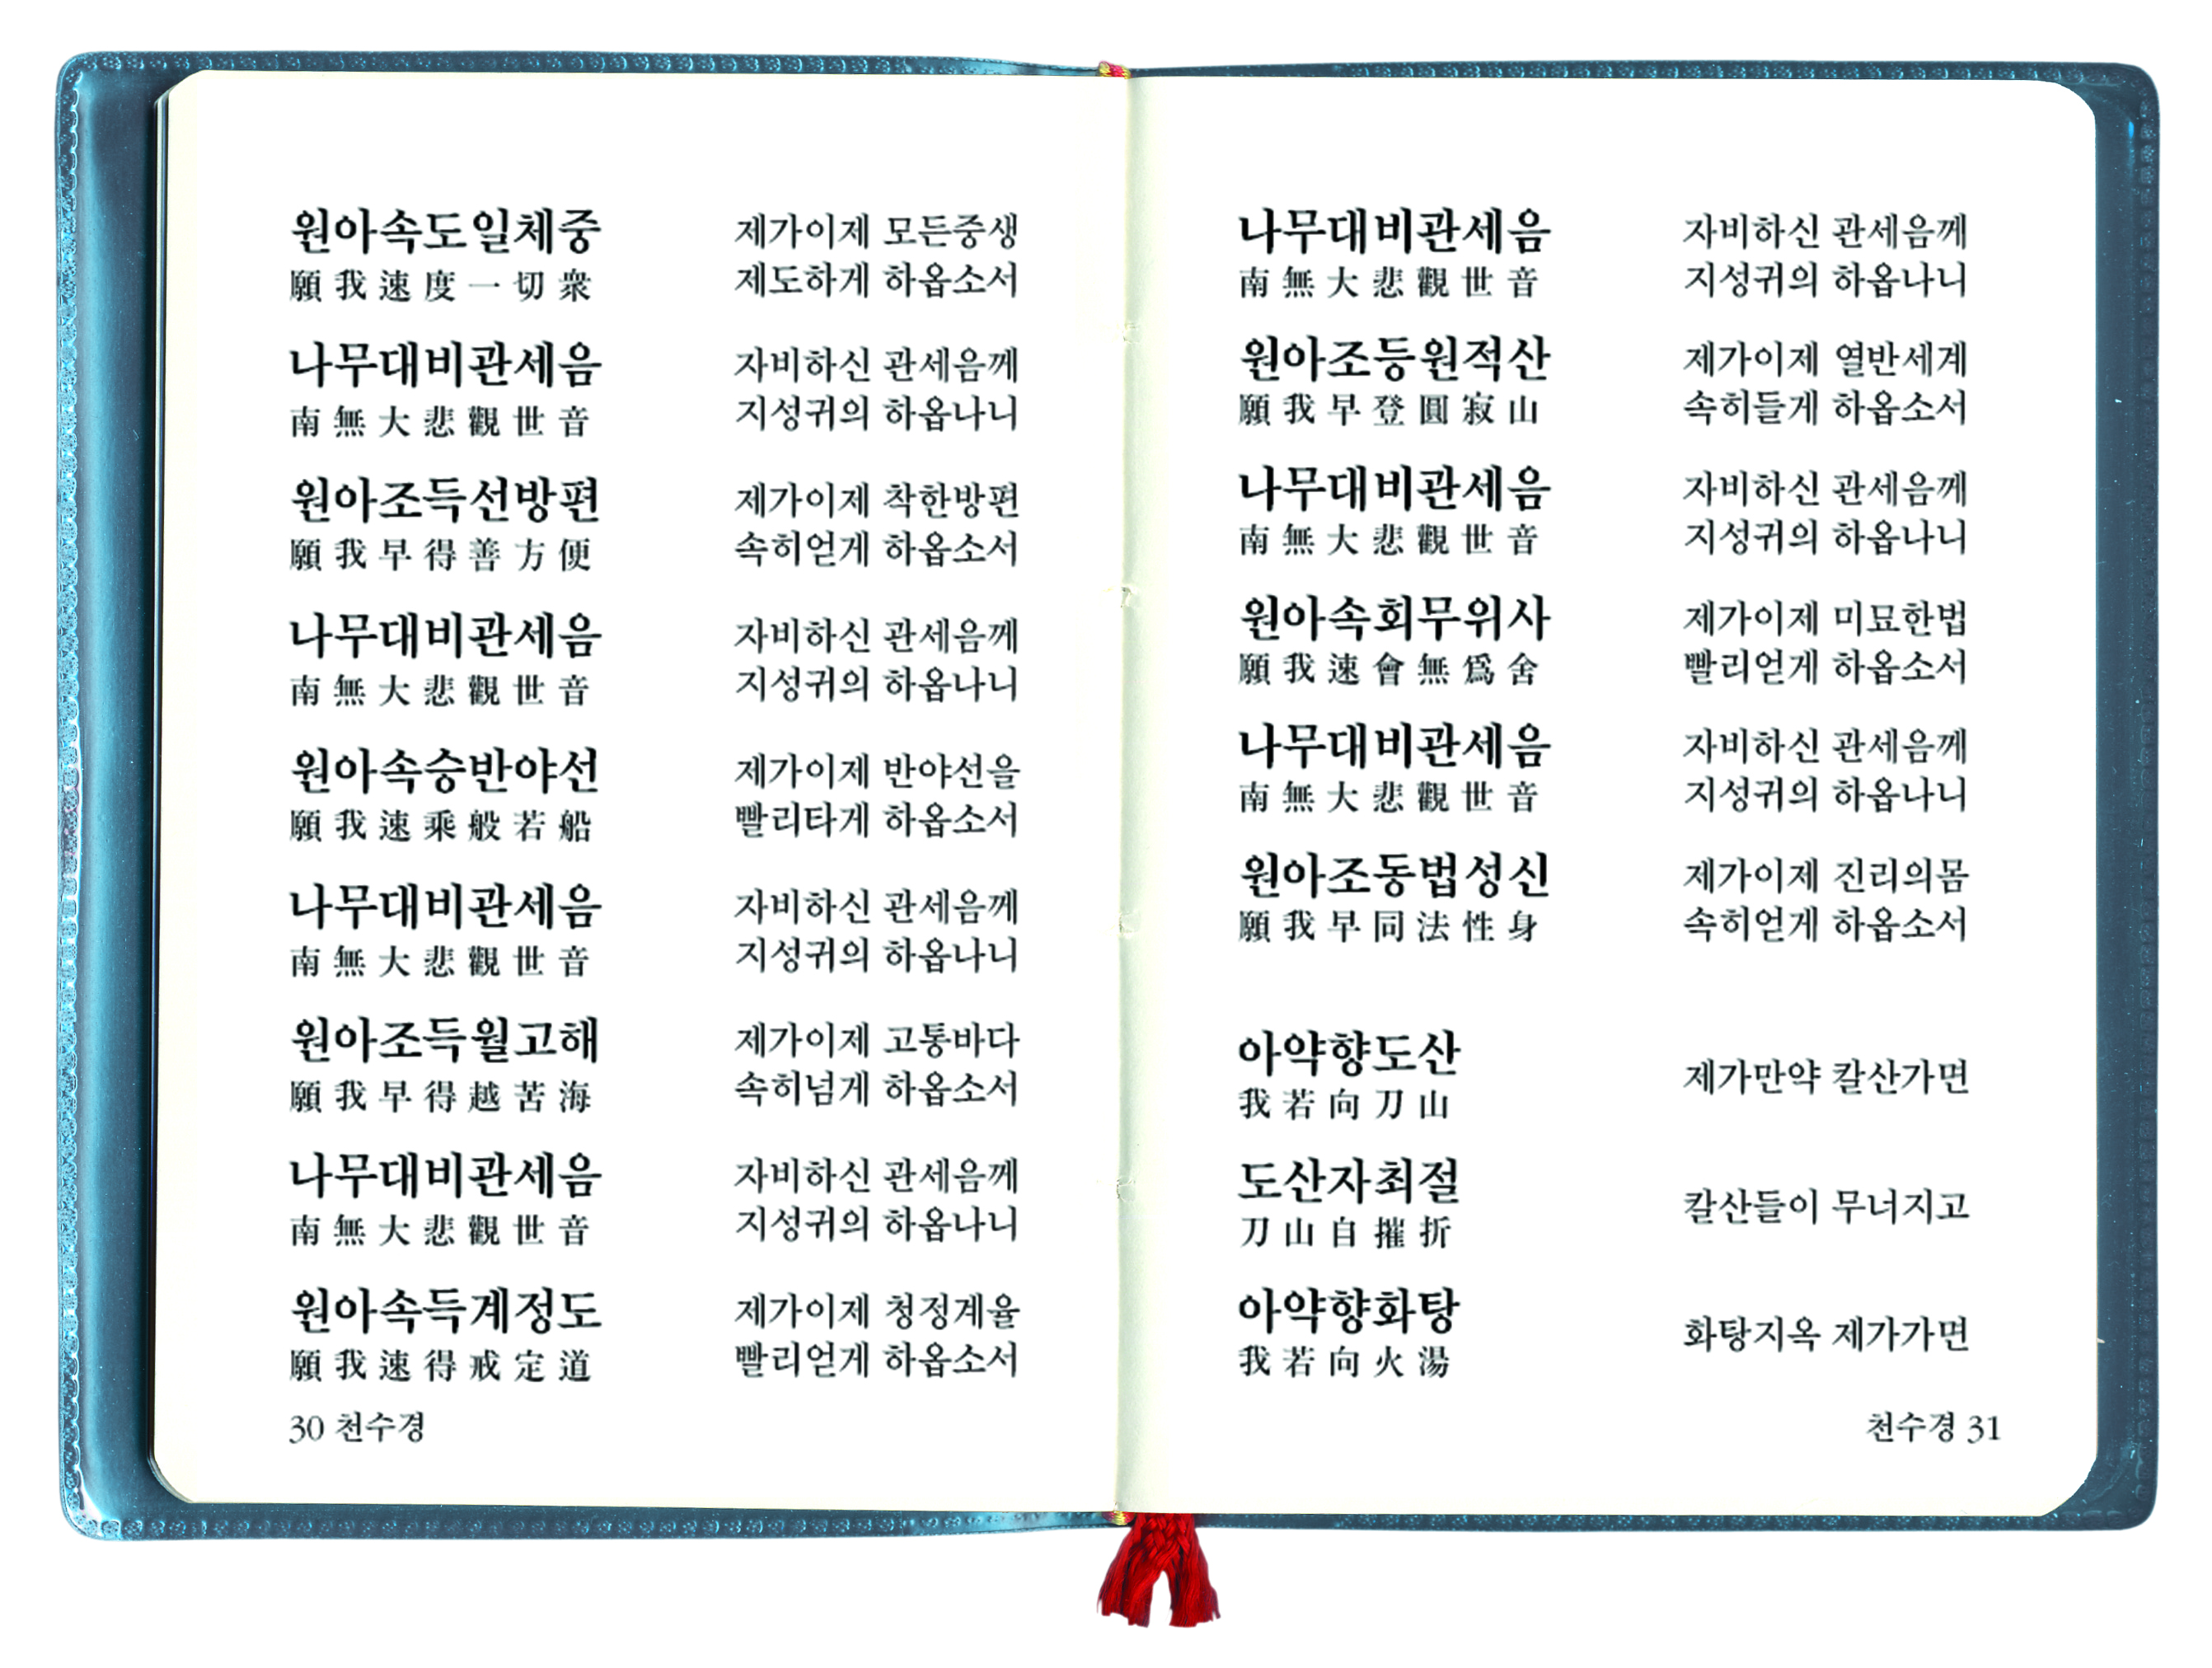 원아속도일체중 제가이제 모든중생
願我速度一切衆 제도하게 하옵소서
나무대비관세음 자비하신 관세음께
南無大悲觀世音 지성귀의 하옵나니
원아조득선방편 제가이제 착한방편
願我早得善方便 속히얻게 하옵소서
나무대비관세음 자비하신 관세음께
南無大悲觀世音 지성귀의 하옵나니
원아속승반야선 제가이제 반야선을
願我速乘般若船 빨리타게 하옵소서
나무대비관세음 자비하신 관세음께
南無大悲觀世音 지성귀의 하옵나니
원아조득월고해 제가이제 고통바다
願我早得越苦海 속히넘게 하옵소서
나무대비관세음 자비하신 관세음께
南無大悲觀世音 지성귀의 하옵나니
원아속득계정도 제가이제 청정계율
願我速得戒定道 빨리얻게 하옵소서
30 천수경
나무대비관세음 자비하신 관세음께
南無大悲觀世音 지성귀의 하옵나니
원아조등원적산 제가이제 열반세계
願我早登圓寂山 속히들게 하옵소서
나무대비관세음 자비하신 관세음께
南無大悲觀世音 지성귀의 하옵나니
원아속회무위사 제가이제 미묘한법
願我速會無爲舍 빨리얻게 하옵소서
나무대비관세음 자비하신 관세음께
南無大悲觀世音 지성귀의 하옵나니
원아조동법성신 제가이제 진리의몸
願我早同法性身 속히얻게 하옵소서
아약향도산 제가만약 칼산가면
我若向刀山
도산자최절 칼산들이 무너지고
刀山自摧折
아약향화탕 화탕지옥 제가가면
我若向火湯
천수경 31